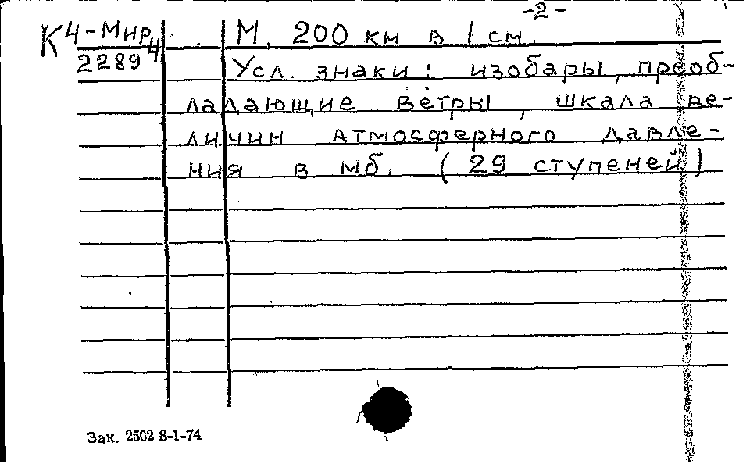 -2-
К4-Мир 4 М. 200 км в 1 см.
2289 Усл. знаки: изобары, преоб-
ладающие ветры, шкала ве-
личин атмосферного давле-
ния в мб. (29 ступеней)
Зак. 2502 8-1-74